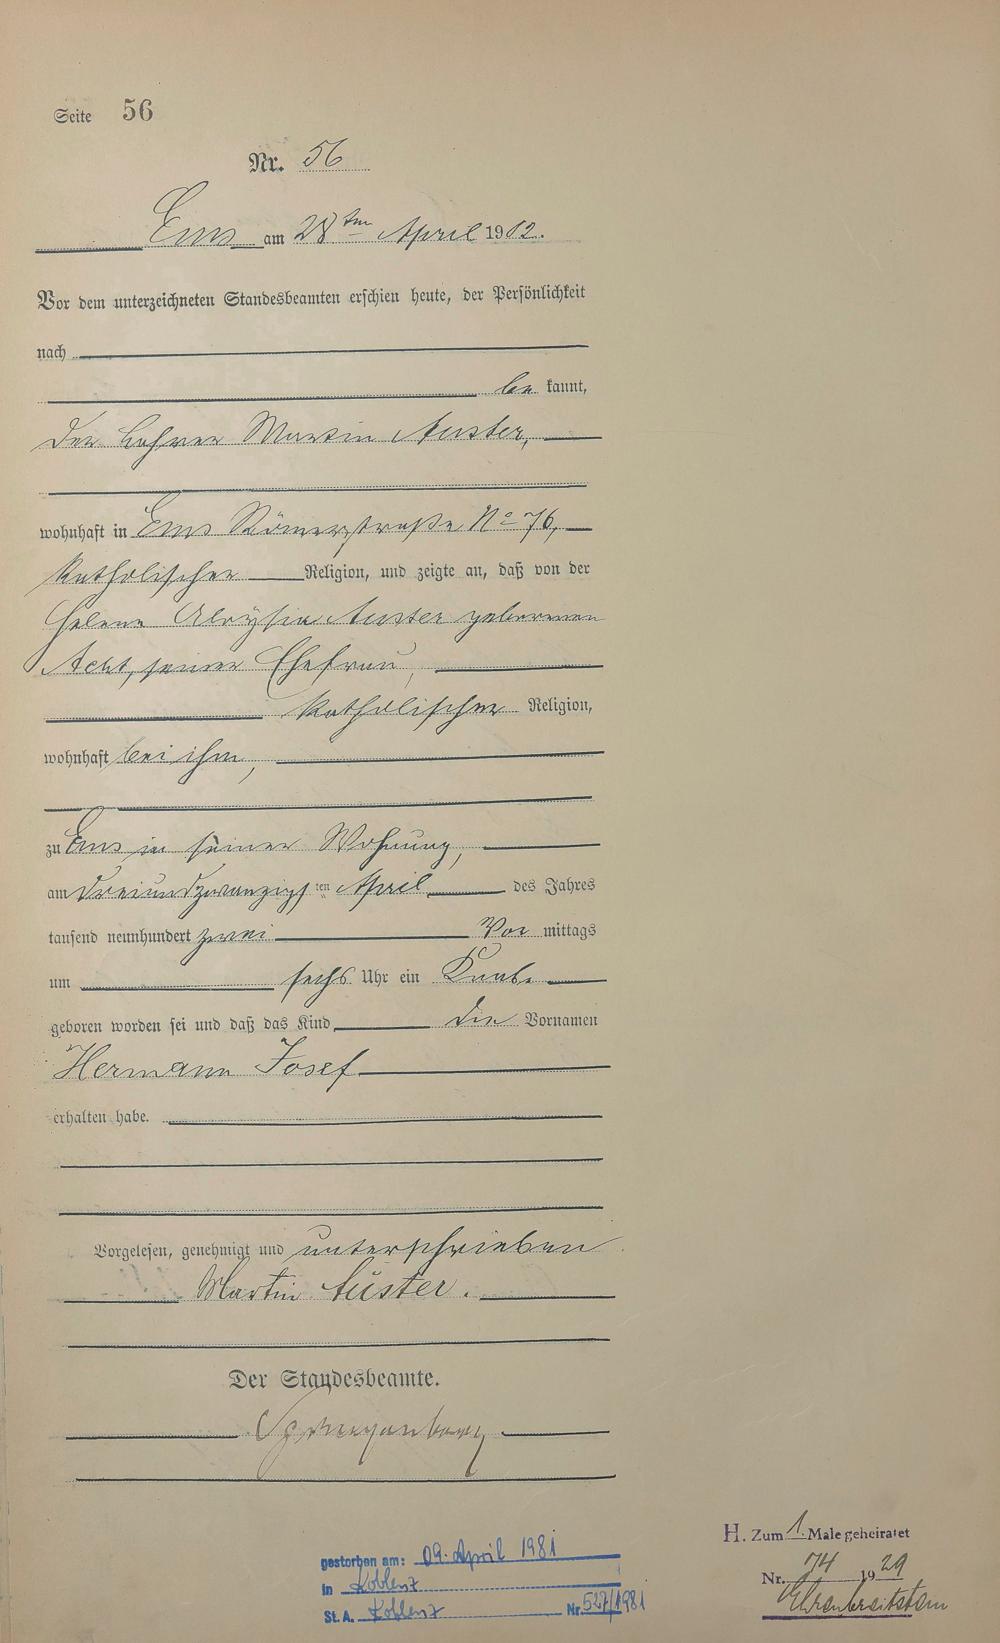 Seite 56
Nr. 56
Ems am 28ten April 1902.
Vor dem unterzeichneten Standesbeamten erschien heute, der Persönlichkeit
nach
be kannt,
der Lehrer Martin Auster,
wohnhaft in Ems Römerstraße No 76,
katholischer Religion, und zeigte an, daß von der
Helene Aloysia Auster geborenen
Acht, seiner Ehefrau,
katholischer Religion,
wohnhaft bei ihm,
zu Ems in seiner Wohnung,
am dreiundzwanzigsten April des Jahres
tausend neunhundert zwei Vor mittags
um sechs Uhr ein Knabe
geboren worden sei und daß das Kind die Vornamen
Hermann Josef
erhalten habe.
Vorgelesen, genehmigt und unterschrieben
Martin Auster.
Der Standesbeamte.
gestorben am: 09. April 1981
in Koblenz
St. A. Koblenz Nr. 527/1981
H. Zum 1. Male geheiratet
Nr. 74 1929
Ehrenbreitstein